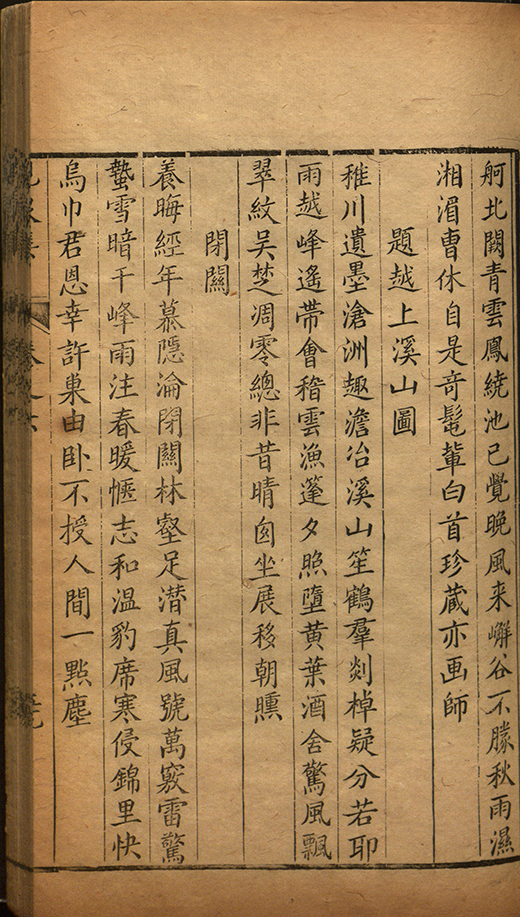 舸北闕青雲鳳繞池已覺晚風來嶰谷不勝秋雨濕
湘湄曹休自是奇髦輩白首珍藏亦画師
題越上溪山圖
稚川遺墨滄洲趣澹冶溪山笙鶴羣剡棹疑分若耶
雨越峰遙帶會稽雲漁篷夕照墮黄葉酒舍驚風飄
翠紋吴楚凋零總非昔晴囱坐展移朝曛
閉關
養晦經年慕隠淪閉關林壑足潜真風號萬竅雷驚
蟄雪暗千峰雨注春暖愜志和溫豹席寒侵錦里快
烏巾君恩幸許巢由卧不授人間一點塵